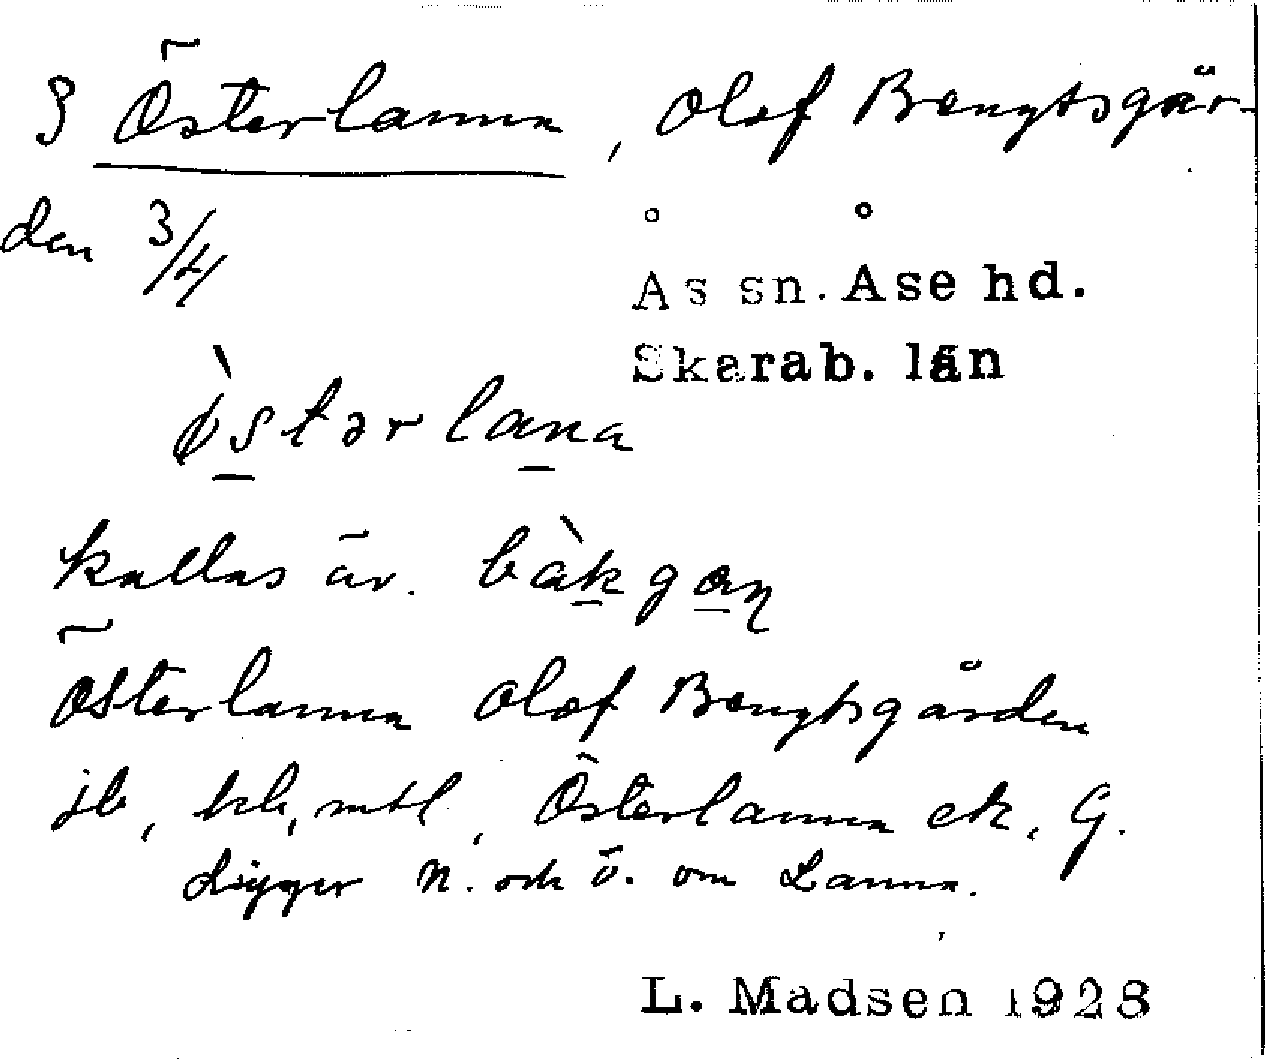 § Österlanna, Olof Bengtsgår-
den 3/4
Ås sn. Åse hd.
Skarab. län
ø̀s̲tərlan̲a
kallas äv. bàk̲ga̲ɳ
Österlanna Olof Bengtsgården
jb, kb, mtl, Österlanna ek, G.
Ligger n. och ö. om Lanna.
L. Madsen 1928